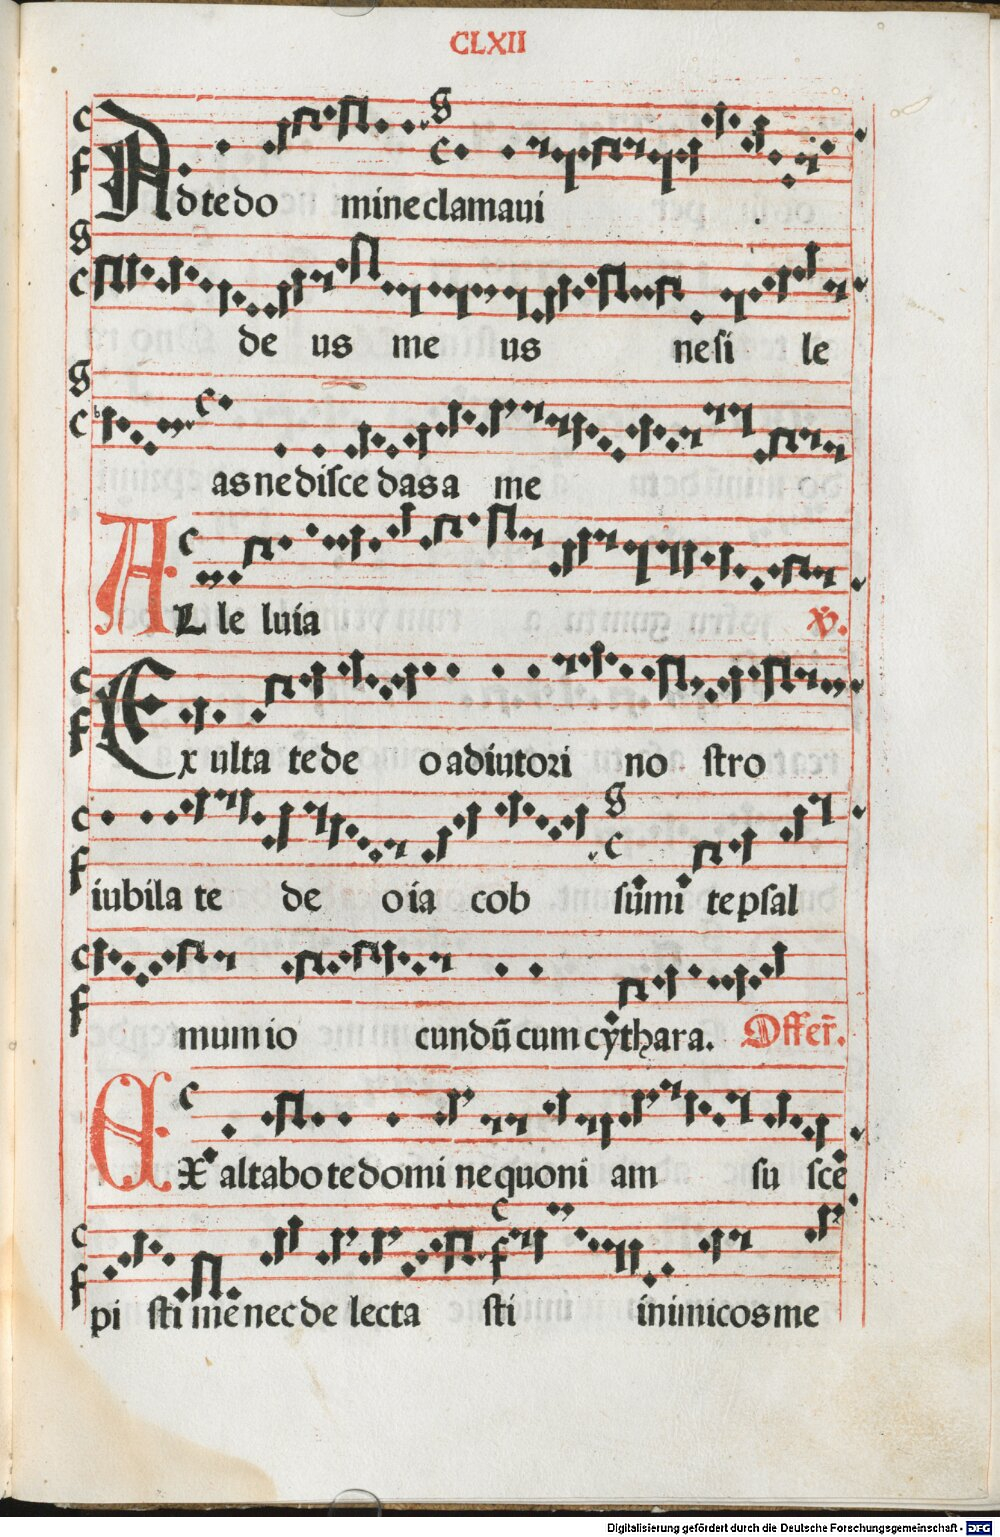 CLXII
Ad te do mine clamaui
de us me us ne si le
as ne disce das a me
AL le luia ℣.
Ex ulta te de o adiutori no stro
iubila te de o ia cob sumi te psal
mum io cundū cum cythara. Offer̄.
EX altabo te domi ne quoni am su sce
pi sti me nec de lecta sti inimicos me
Digitalisierung gefördert durch die Deutsche Forschungsgemeinschaft - DFG